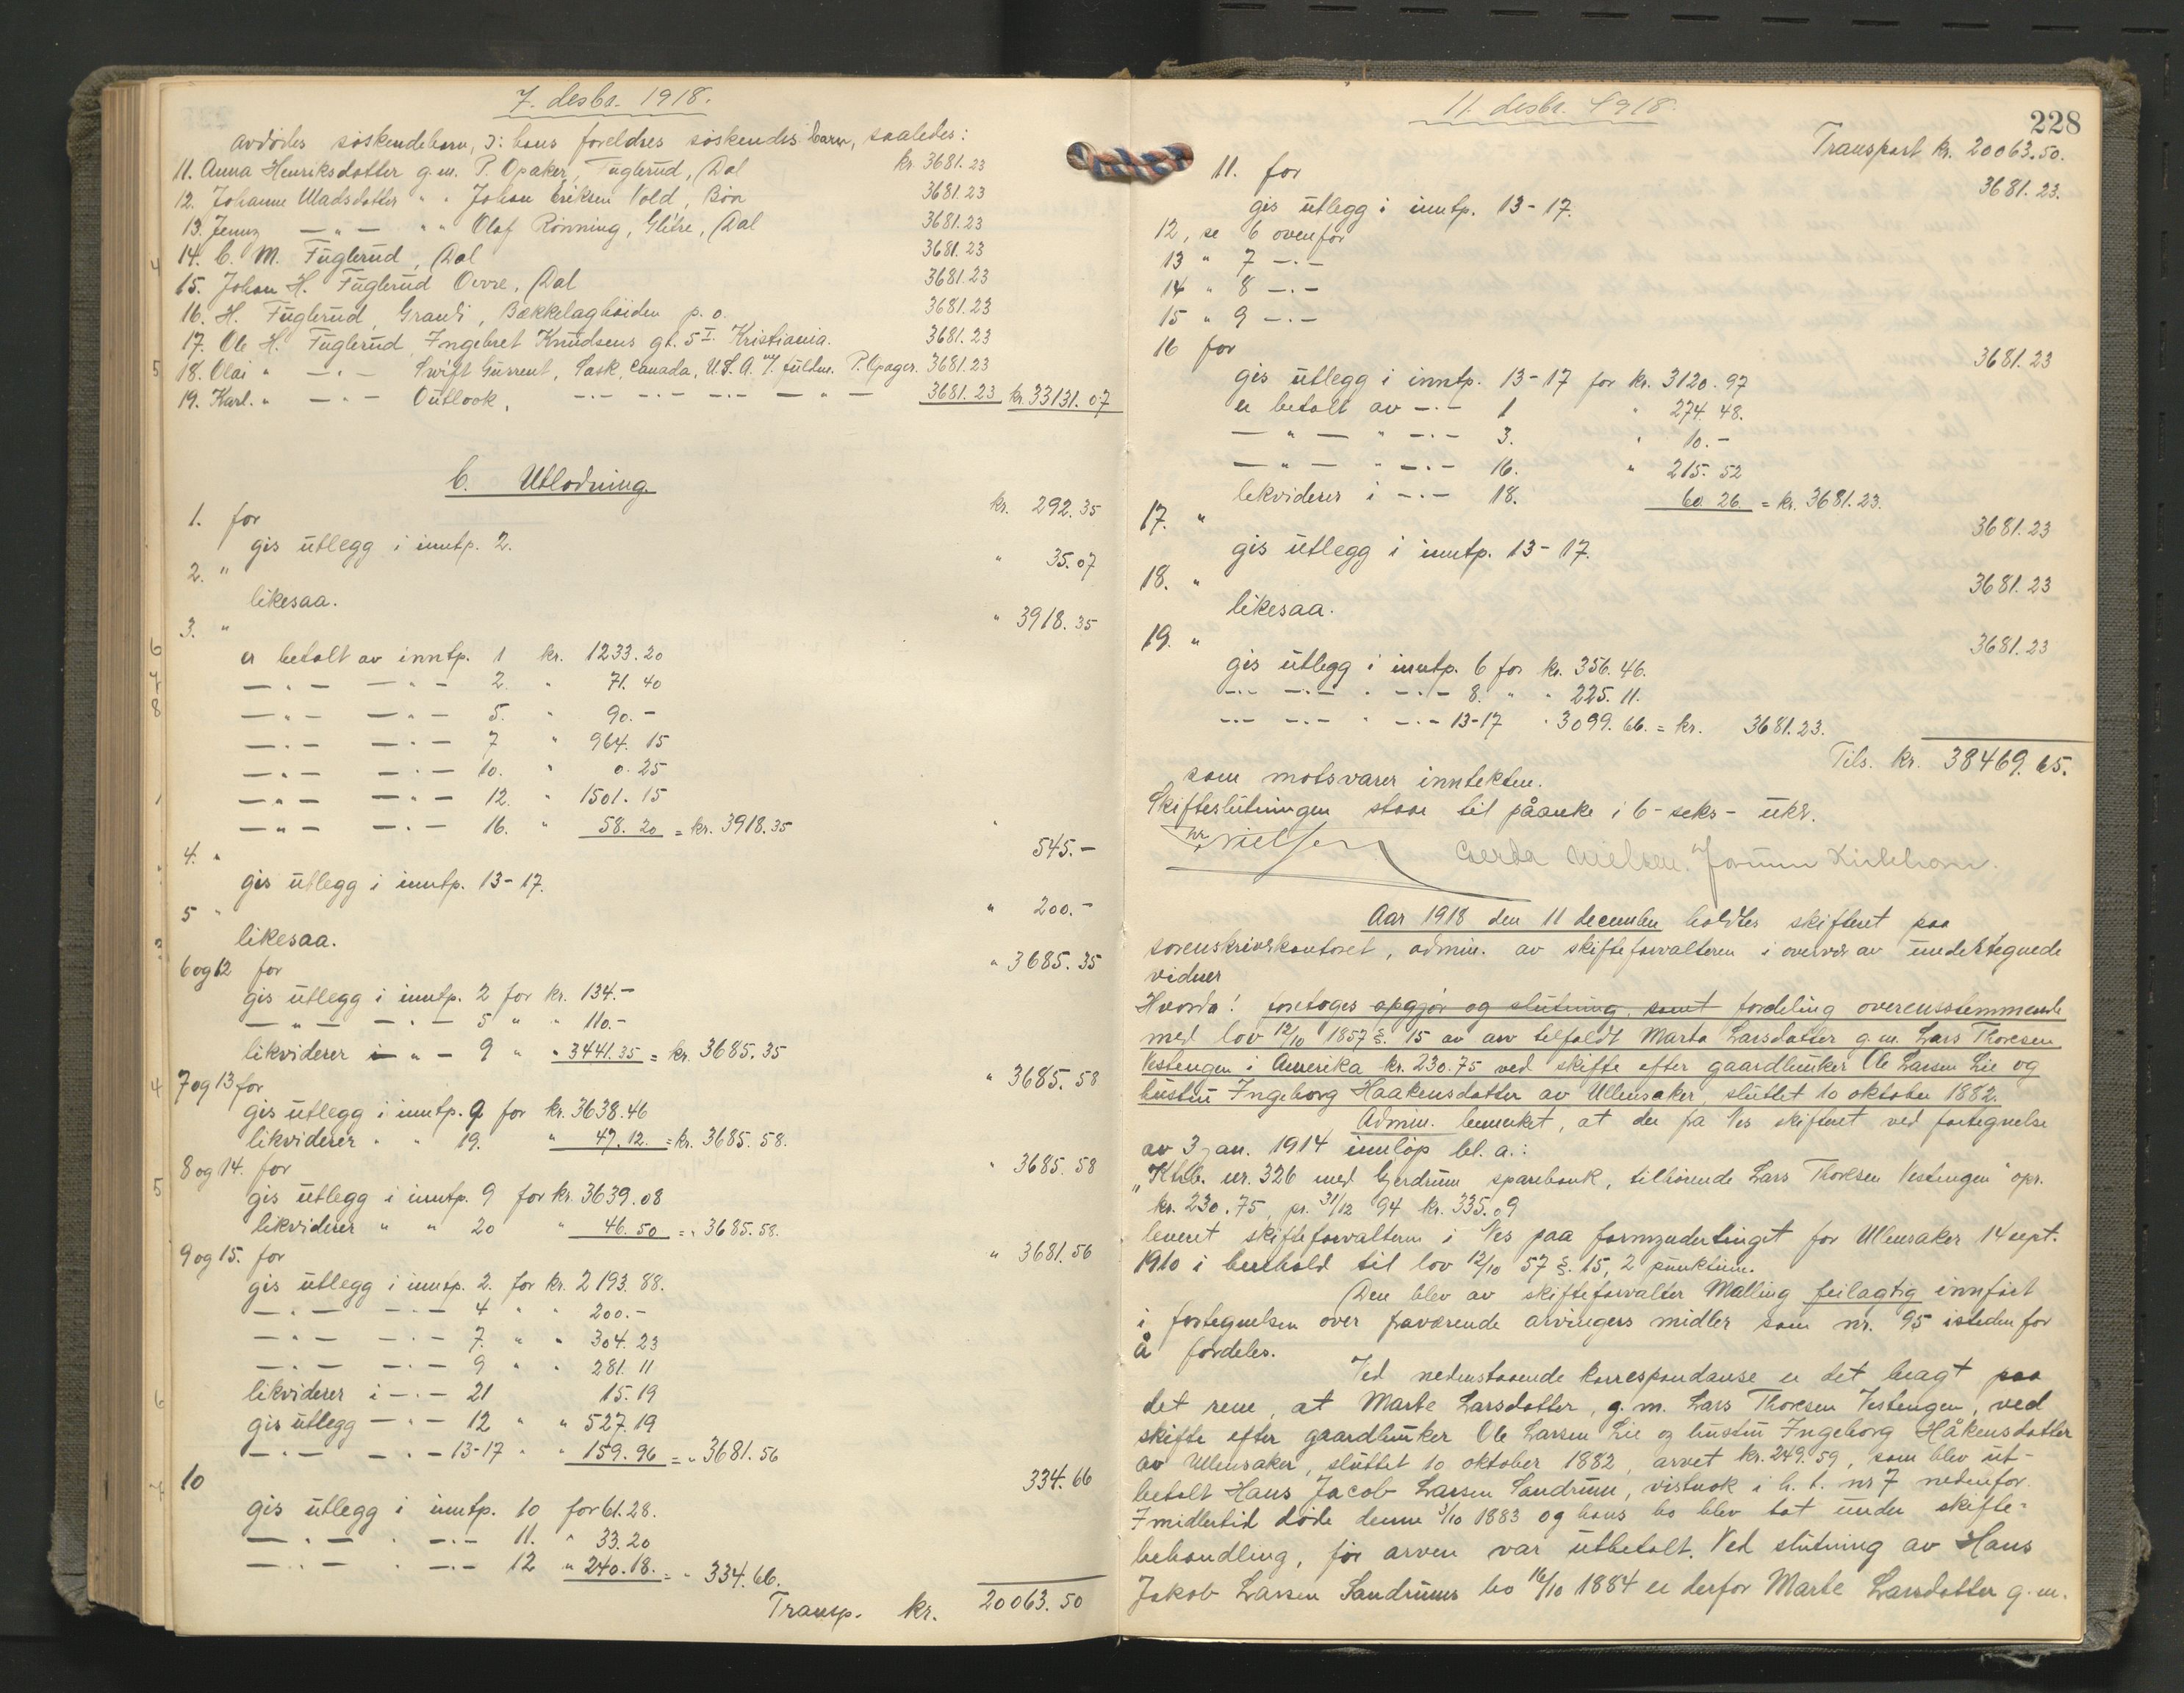 7. desbr. 1918.
avdödes söskendebarn, ɔ: hans foreldres söskendes barn, saaledes:
11. Anna Henriksdatter g.m. P. Opaker, Fuglerud, Dal kr. 3681.23
12. Johanne Madsdatter " " Johan Eriksen Vold, Bön 3681.23
13. Jenny — " — " " Olaf Rönning, Glitre, Dal 3681.23
14. C. M. Fuglerud, Dal 3681.23
15. Johan H. Fuglerud Övre, Dal 3681.23
16. H. Fuglerud, Grandi, Bækkelagshöiden p. o. 3681.23
17. Ole H. Fuglerud, Ingebret Knudsens gt. 5 I Kristiania. 3681.23
18. Olai " — " — Swift Current, Sask, Canada, U.S.A. v/ fuldm. P. Opager. 3681.23
19. Karl. " — " — Outlook, —·— —·— —·— — " — 3681.23 kr. 33131.07
C. Utlodning.
1. for kr. 292.35
gis utlegg i inntp. 2.
2. " " 35.07
likesaa.
3. " " 3918.35
er betalt av inntp. 1 kr. 1233.20
— " — — " — 2. " 71.40
— " — — " — 5. " 90.-
— " — — " — 7 " 964.15
— " — — " — 10. " 0.25
— " — — " — 12. " 1501.15
— " — — " — 16. " 58.20 = kr. 3918.35
4. " " 545.-
gis utlegg i inntp. 13-17.
5 " " 200.-
likesaa.
6 og 12 for " 3685.35
gis utlegg i inntp. 2 for kr. 134.-
— " — — " — 5 " " 110.-
likviderer i — " — 9 " " 3441.35 = kr. 3685.35
7 og 13 for " 3685.58
gis utlegg i inntp. 9 for kr. 3638.46
likviderer " " 19. " 47.12. = kr. 3685.58.
8 og 14. for " 3685.58
gis utlegg i inntp. 9 for kr. 3639.08
likviderer " " 20 " 46.50 = " 3685.58.
9 og 15. for " 3681.56
gis utlegg i inntp. 2. for kr. 2193.88.
— " — — " — 4 " " 200.-
— " — — " — 7. " " 304.23
— " — — " — 9 " " 281.11
likviderer i — " — 21 15.19
gis utlegg — " — 12 " " 527.19
— " — — " — 13-17 " " 159.96 = " 3681.56
10 334.66
gis utlegg i inntp. 10 for 61.28.
— " — " — " — 11. " 33.20
— " — " — " — 12 " 240.18. = " 334.66.
Transp. kr. 20063.50
11. desbr. 1918.
228
Transport kr. 20063.50.
11. for 3681.23.
gis utlegg i inntp. 13-17.
12, se 6 ovenfor
13 " 7 —·—
14 " 8 —·—
15 " 9 —·—
16 for 3681.23
gis utlegg i inntp. 13-17 for kr. 3120.97
er betalt av —·— 1 " 274.48.
— " — " —·— 3. " 10.-
— " — " —·— 16. " 215.52
likviderer i —·— 18. 60.26. = kr. 3681.23.
17. " 3681.23
gis utlegg i inntp. 13-17.
18. " 3681.23
likesaa.
19. " 3681.23
gis utlegg i inntp. 6 for kr. 356.46.
—·— —·— " —·— 8. " " 225.11.
—·— —·— " —·— 13-17 " 3099.66. = kr. 3681.23.
Tils. kr. 38469.65.
som motsvarer inntekten.
Skifteslutningen staar til påanke i 6 - seks - uker.
Nielsen Gerda Nielsen. Jorunn
Aar 1918 den 11 december holdtes skifteret paa
sorenskriverkontoret, admin. av skifteforvalteren i overvær av undertegnede
vidner
Hvorda! foretoges opgjör og slutning, samt fordeling overensstemmende
med lov 12/10 1857 §. 15 av arv tilfaldt Marta Larsdatter g.m. Lars Thoresen
Vestengen i Amerika kr. 230.75 ved skifte efter gaardbruker Ole Larsen Lie og
hustru Ingeborg Haakensdatter av Ullensaker, sluttet 10 oktober 1882.
Admin. bemerket, at der fra Nes skifteret ved fortegnelse
av 3 jan. 1914 innlöp bl. a.:
"Ktrb. nr. 326 med Gjerdrum sparebank, tilhörende Lars Thoresen Vestengen" opr.
kr. 230.75, pr. 31/12 94 kr. 335.09
leveret skifteforvalteren i Nes paa formyndertinget for Ullensaker 14 sept.
1910 i henhold til lov 12/10 57 §. 15, 2 punktum.
Den blev av skifteforvalter Malling feilagtig innfört
i fortegnelsen over fraværende arvingers midler som nr. 95 istedenfor
å fordeles.
Ved nedenstaaende korrespondanse er det bragt paa
det rene, at Marte Larsdatter, g.m. Lars Thoresen Vestengen, ved
skifte efter gaardbruker Ole Larsen Lie og hustru Ingeborg Håkensdatter
av Ullensaker, sluttet 10 oktober 1882, arvet kr. 249.59, som blev ut-
betalt Hans Jacob Larsen Sandrum, vistnok i h. t. nr 7 nedenfor.
Imidlertid döde denne 3/10 1883 og hans bo blev tat under skifte-
behandling, för arven var utbetalt. Ved slutning av Hans
Jakob Larsen Sandrums bo 16/10 1884 er derfor Marte Larsdatter g.m.